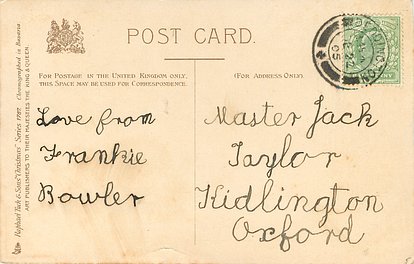 POST CARD.
FOR POSTAGE IN THE UNITED KINGDOM ONLY,
THIS SPACE MAY BE USED FOR CORRESPONDENCE.
(FOR ADDRESS ONLY.)
Love from
Frankie
Bowler
Master Jack
Taylor
Kidlington
Oxford
Raphael Tuck & Sons' "Christmas" Series 1787. Chromographed in Bavaria
ART PUBLISHERS TO THEIR MAJESTIES THE KING & QUEEN.
05